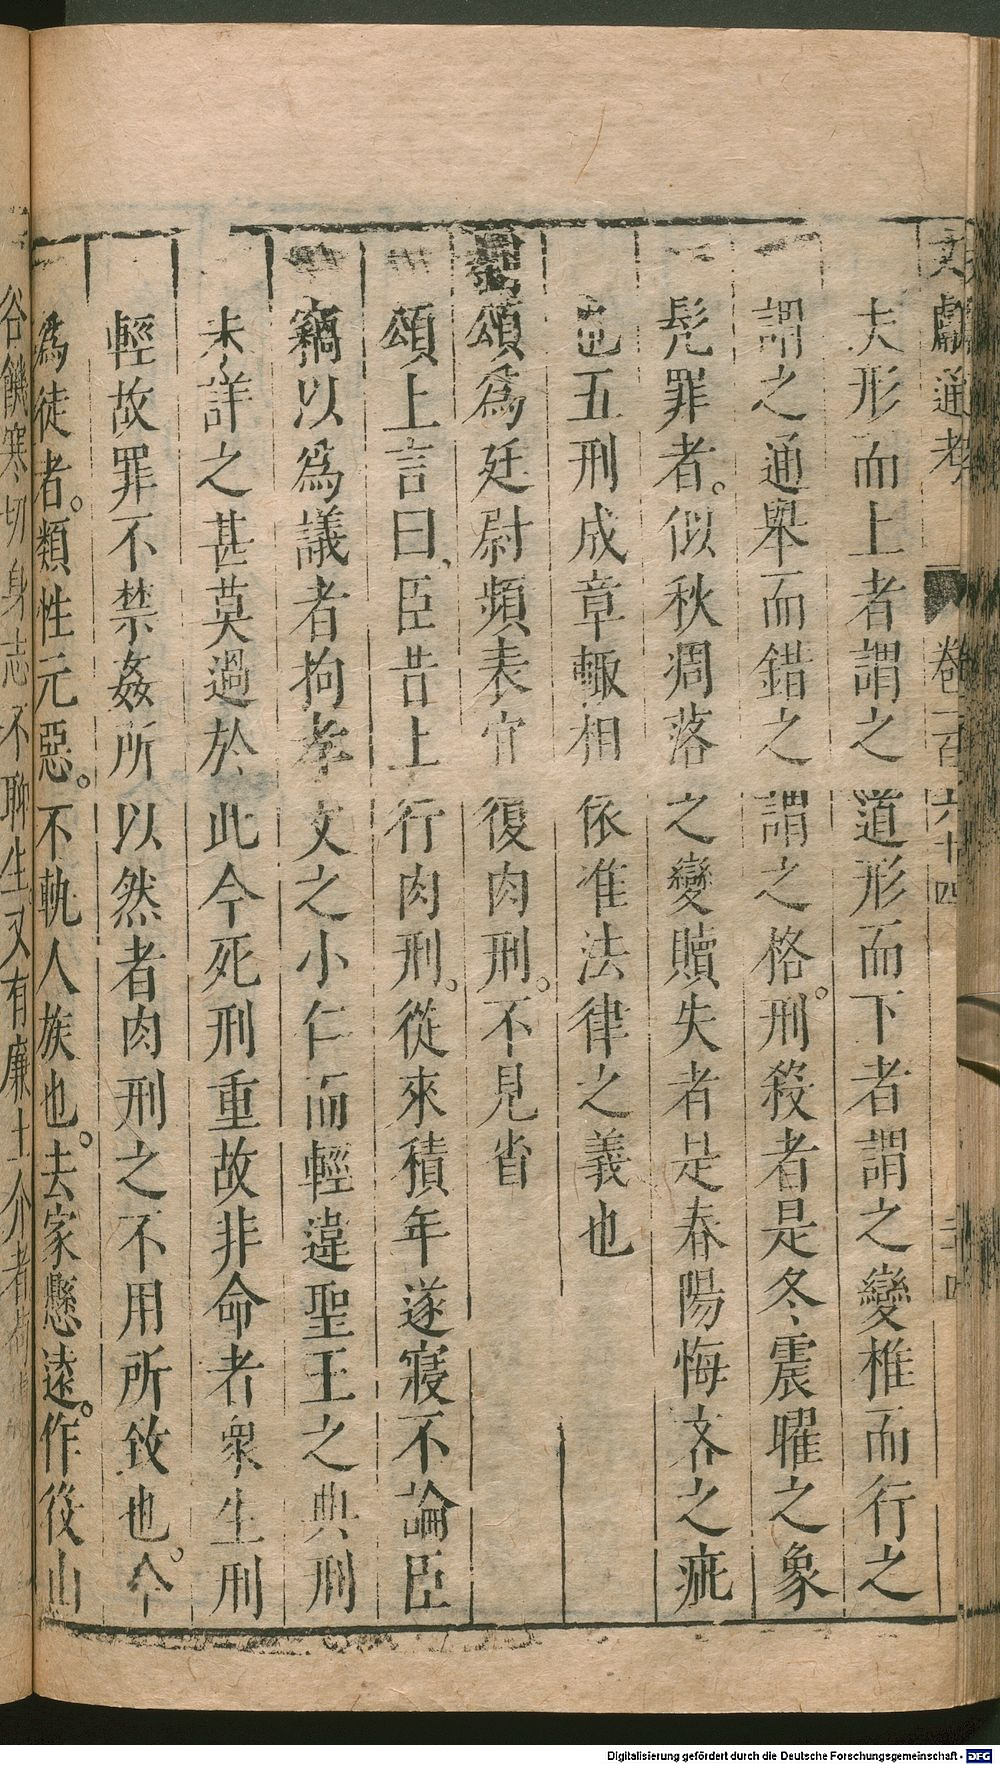 文獻通考 卷一百六十四 二十四
夫形而上者謂之道形而下者謂之變椎而行之
謂之通舉而錯之謂之格刑殺者是冬震曜之象
髡罪者似秋凋落之變贖失者是春陽悔吝之疵
也五刑成章輙相依准法律之義也
劉頌爲廷尉頻表宜復肉刑不見省
頌上言曰臣昔上行肉刑從來積年遂寢不論臣
竊以爲議者拘孝文之小仁而輕違聖王之典刑
未詳之甚莫過於此今死刑重故非命者衆生刑
輕故罪不禁姦所以然者肉刑之不用所致也今
爲徒者類性元惡不軌人族也去家懸遠作役山
谷饑寒切身志不聊生又有廉士介者
Digitalisierung gefördert durch die Deutsche Forschungsgemeinschaft - DFG